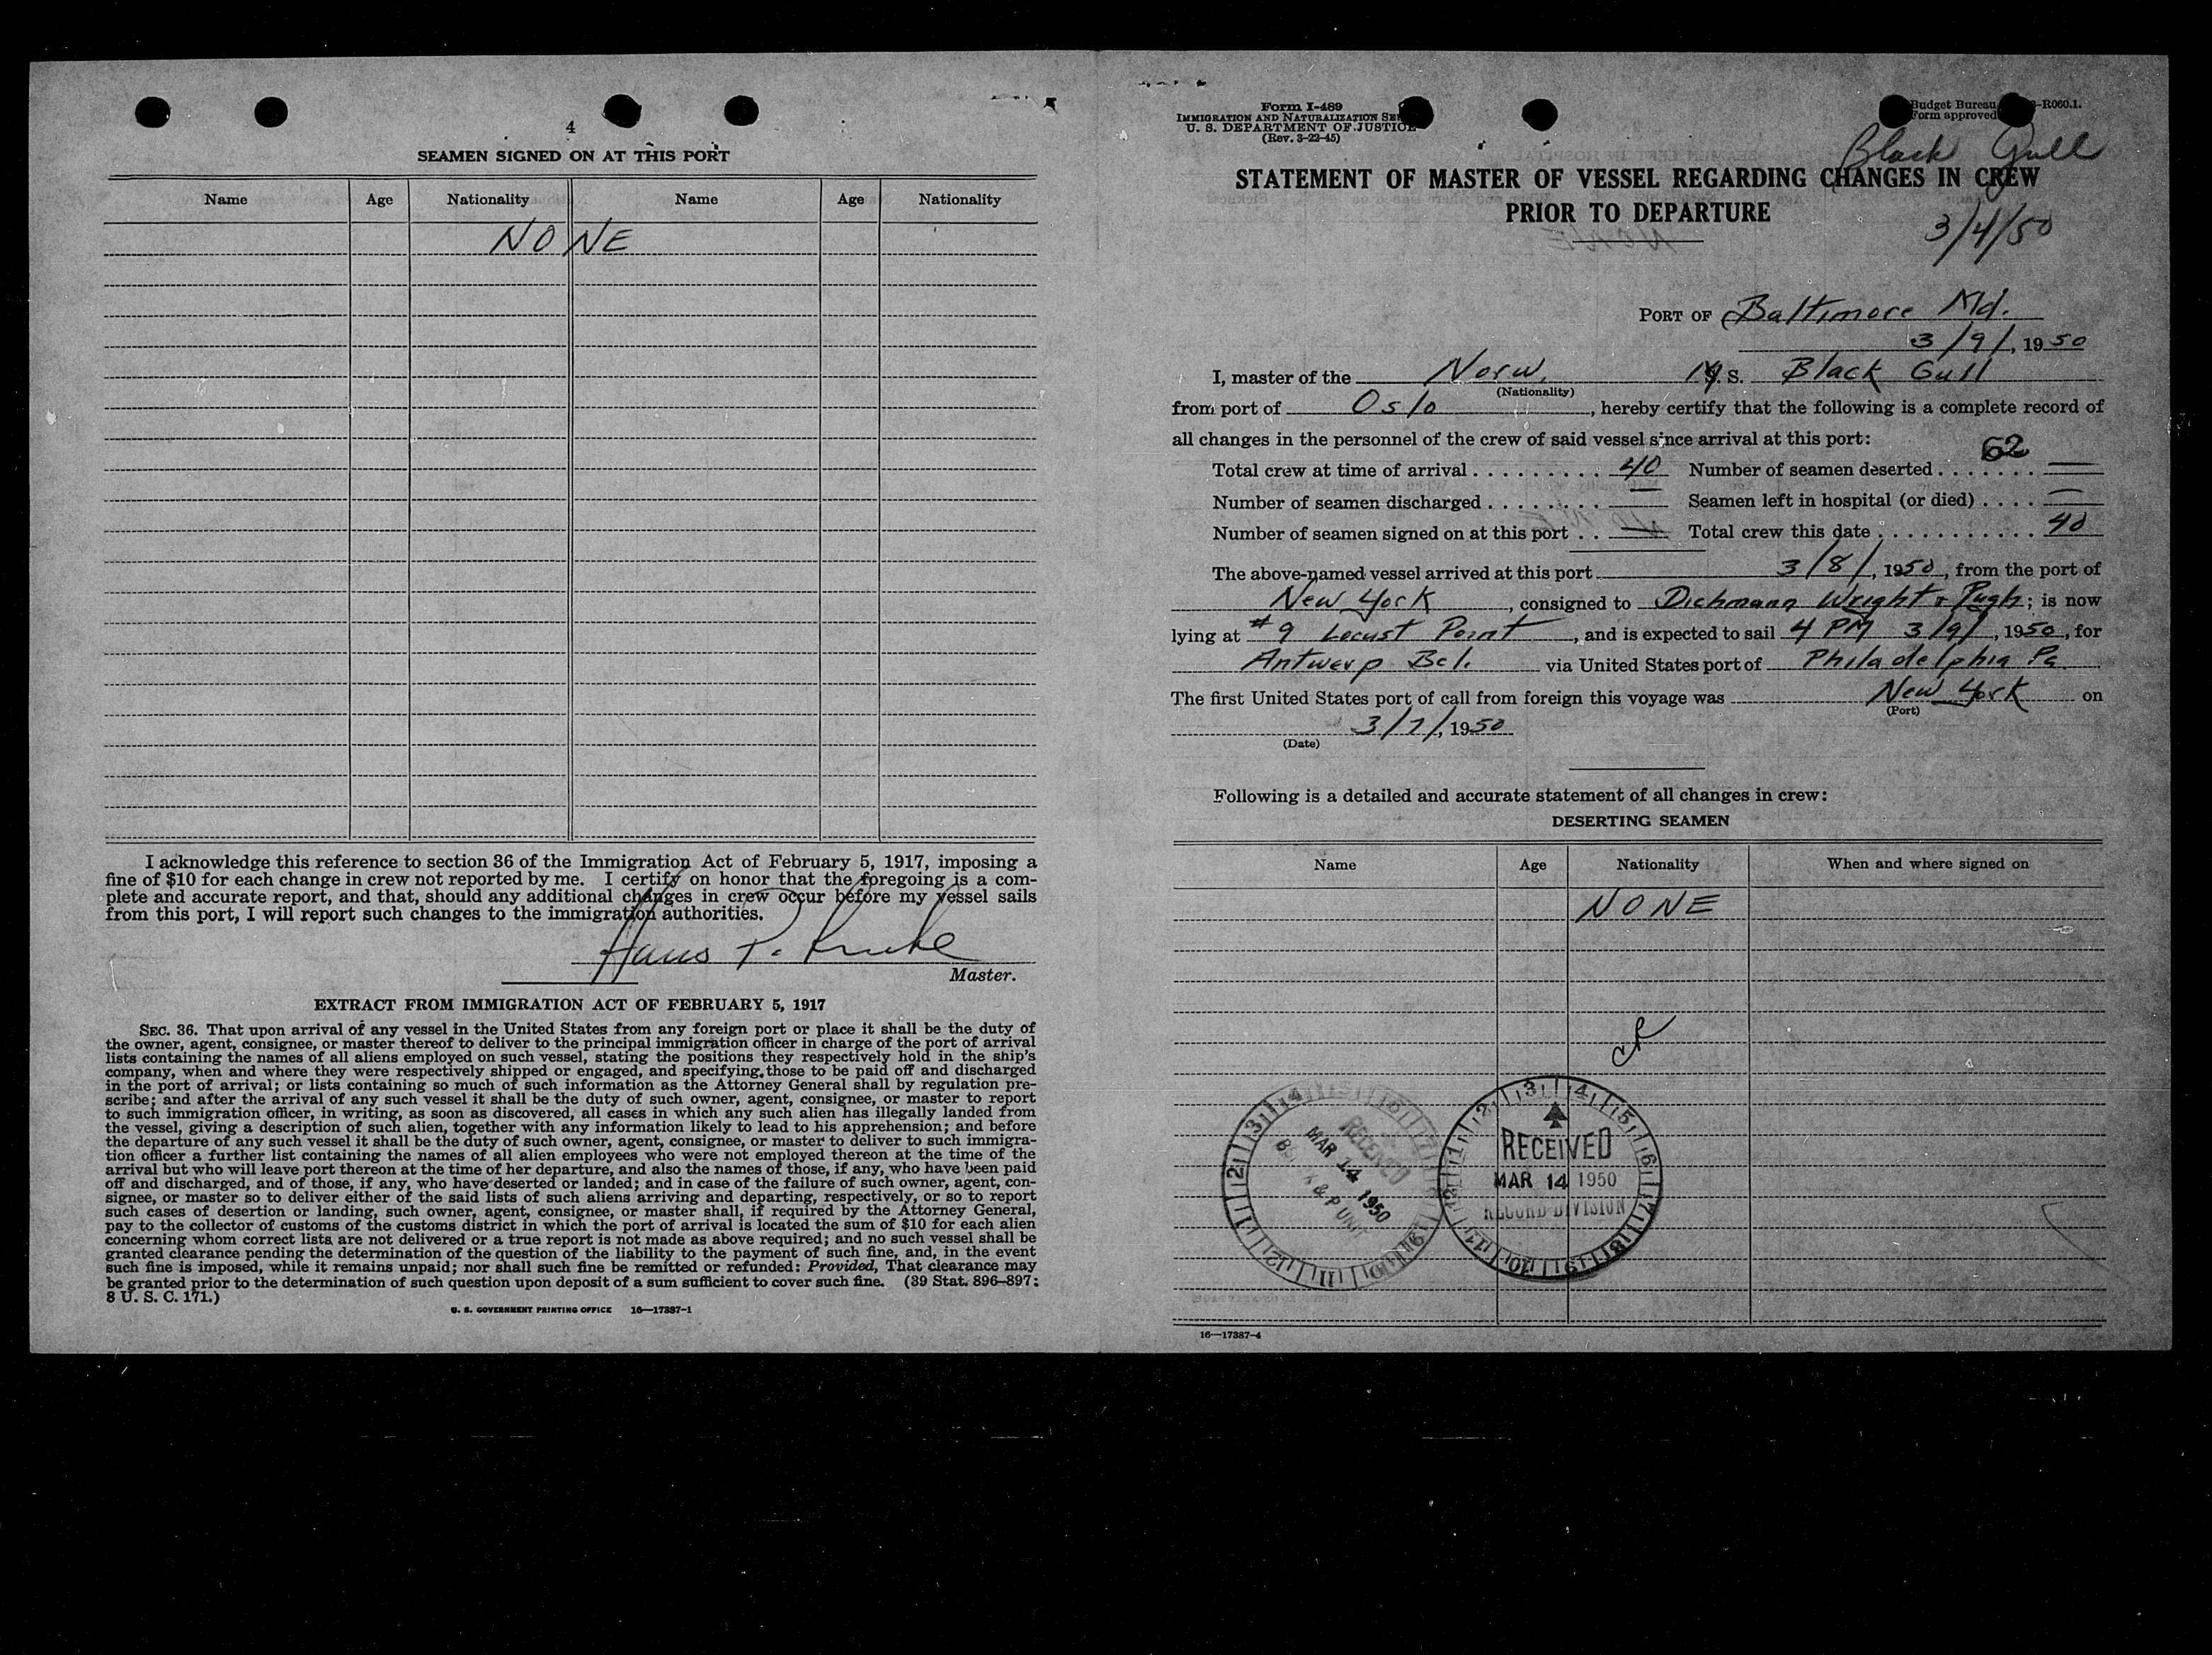 4
SEAMEN SIGNED ON AT THIS PORT
Name Age Nationality Name Age Nationality
NONE
I acknowledge this reference to section 36 of the Immigration Act of February 5, 1917, imposing a
fine of $10 for each change in crew not reported by me. I certify on honor that the foregoing is a com-
plete and accurate report, and that, should any additional changes in crew occur before my vessel sails
from this port, I will report such changes to the immigration authorities.
Hans P.
Master.
EXTRACT FROM IMMIGRATION ACT OF FEBRUARY 5, 1917
SEC. 36. That upon arrival of any vessel in the United States from any foreign port or place it shall be the duty of
the owner, agent, consignee, or master thereof to deliver to the principal immigration officer in charge of the port of arrival
lists containing the names of all aliens employed on such vessel, stating the positions they respectively hold in the ship's
company, when and where they were respectively shipped or engaged, and specifying those to be paid off and discharged
in the port of arrival; or lists containing so much of such information as the Attorney General shall by regulation pre-
scribe; and after the arrival of any such vessel it shall be the duty of such owner, agent, consignee, or master to report
to such immigration officer, in writing, as soon as discovered, all cases in which any such alien has illegally landed from
the vessel, giving a description of such alien, together with any information likely to lead to his apprehension; and before
the departure of any such vessel it shall be the duty of such owner, agent, consignee, or master to deliver to such immigra-
tion officer a further list containing the names of all alien employees who were not employed thereon at the time of the
arrival but who will leave port thereon at the time of her departure, and also the names of those, if any, who have been paid
off and discharged, and of those, if any, who have deserted or landed; and in case of the failure of such owner, agent, con-
signee, or master so to deliver either of the said lists of such aliens arriving and departing, respectively, or so to report
such cases of desertion or landing, such owner, agent, consignee, or master shall, if required by the Attorney General,
pay to the collector of customs of the customs district in which the port of arrival is located the sum of $10 for each alien
concerning whom correct lists are not delivered or a true report is not made as above required; and no such vessel shall be
granted clearance pending the determination of the question of the liability to the payment of such fine, and, in the event
such fine is imposed, while it remains unpaid; nor shall such fine be remitted or refunded: Provided, That clearance may
be granted prior to the determination of such question upon deposit of a sum sufficient to cover such fine. (39 Stat. 896–897;
8 U. S. C. 171.)
U. S. GOVERNMENT PRINTING OFFICE 16—17387-1
Form I-489
IMMIGRATION AND NATURALIZATION
U. S. DEPARTMENT OF JUSTICE
(Rev. 3-22-45)
Budget Bureau -R060.1.
Form approved
Black Gull
STATEMENT OF MASTER OF VESSEL REGARDING CHANGES IN CREW
PRIOR TO DEPARTURE
3/4/50
PORT OF Baltimore Md.
3/9/, 1950
I, master of the Norw. M. S. Black Gull
(Nationality)
from port of Oslo, hereby certify that the following is a complete record of
all changes in the personnel of the crew of said vessel since arrival at this port:
62
Total crew at time of arrival 40 Number of seamen deserted —
Number of seamen discharged — Seamen left in hospital (or died) —
Number of seamen signed on at this port — Total crew this date 40
The above-named vessel arrived at this port 3/8/, 1950, from the port of
New York, consigned to Dichmann Wright & Pugh; is now
lying at #9 Locust Point, and is expected to sail 4 PM 3/9/, 1950, for
Antwerp Bel. via United States port of Philadelphia Pa.
The first United States port of call from foreign this voyage was New York on
(Port)
3/7/, 1950
(Date)
Following is a detailed and accurate statement of all changes in crew:
DESERTING SEAMEN
Name Age Nationality When and where signed on
NONE
RECEIVED
MAR 14 1950
RECEIVED
MAR 14 1950
RECORD DIVISION
16—17387-4